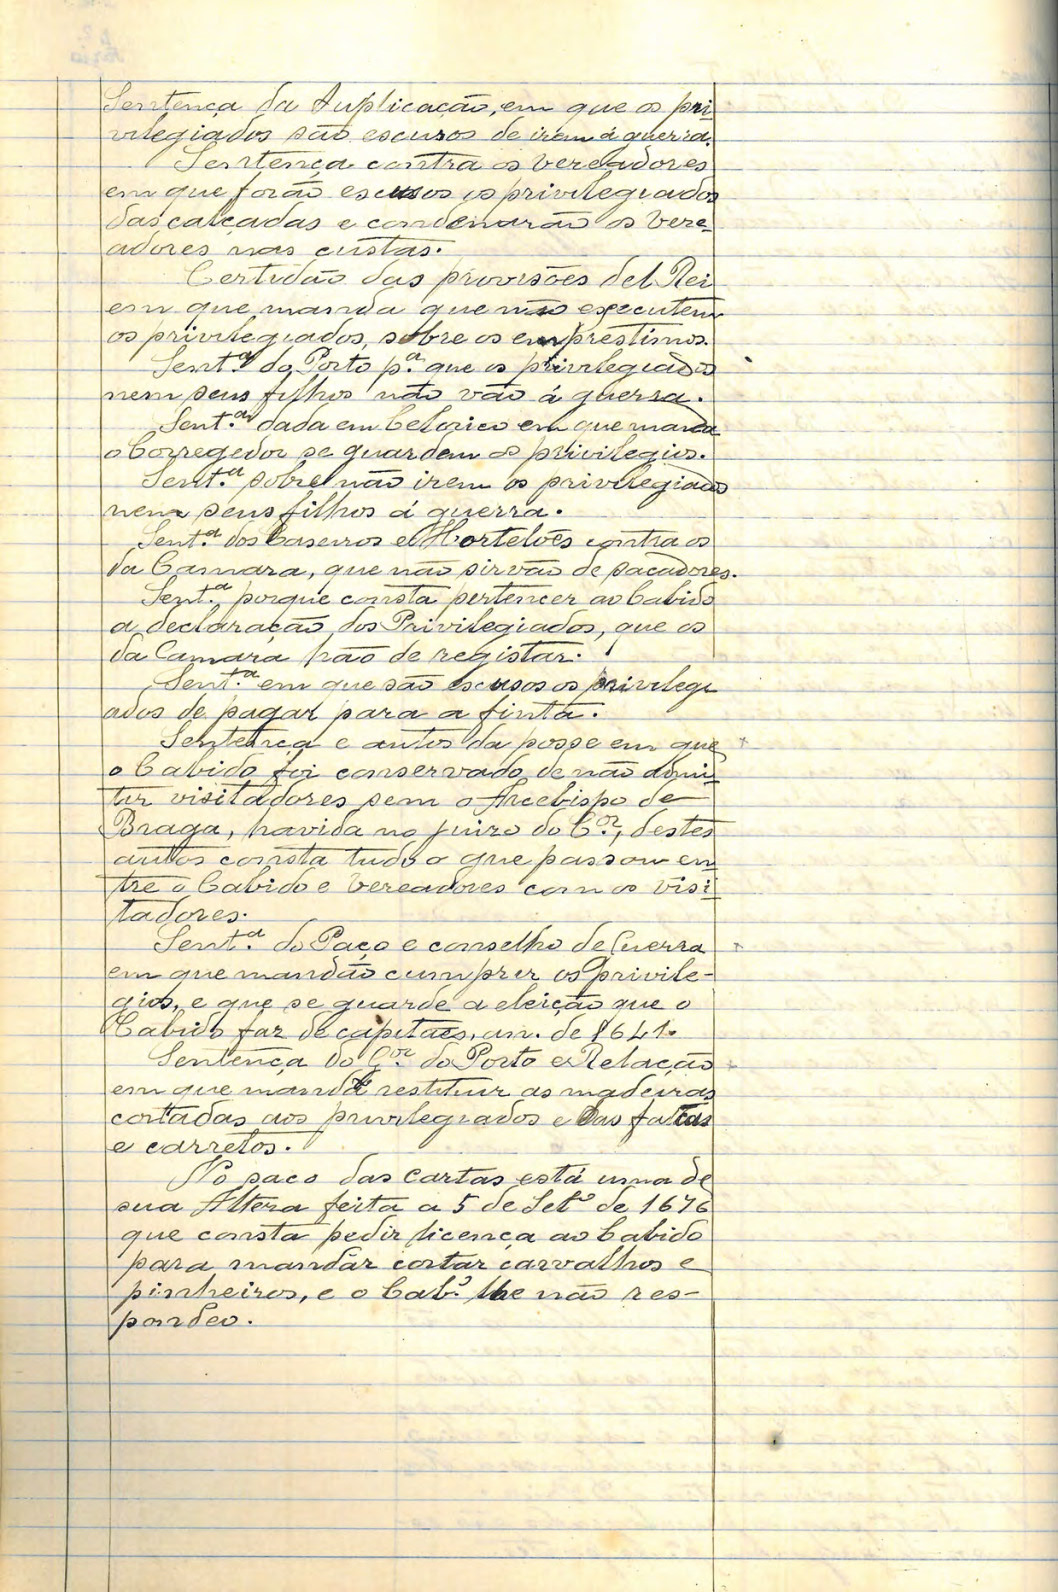 Sentença da Suplicação, em que os pri
vilegiados são escusos de irem á guerra.
Sentença contra os vereadores
em que forão escusos os privilegiados
das calçadas e condenarão os vere-
adores nas custas.
Certidão das provisões del Rei
em que manda que não executem
os privilegiados, sobre os emprestimos.
Sent.ª do Porto p.ª que os privilegiados
nem seus filhos não vão á guerra.
Sent.ª dada em Celorico em que manda
o Corregedor se guardem os privilegios.
Sent.ª sobre não irem os privilegiados
nem seus filhos á guerra.
Sent.ª dos Caseiros e Hortelões contra os
da Camara, que não sirvão de sacadores.
Sent.ª porque consta pertencer ao Cabido
a declaração dos Privilegiados, que os
da Camara hão de registar.
Sent.ª em que são escusos os privilegi
ados de pagar para a finta.
Sentença e autos da posse em que
o Cabido foi conservado de não admi-
tir visitadores sem o Arcebispo de
Braga, havida no juizo do C.or, destes
autos consta tudo o que passou en
tre o Cabido e Vereadores com os visi
tadores.
Sent.ª do Paço e conselho de Guerra
em que mandão cumprir os privile-
gios, e que se guarde a eleição que o
Cabido faz de capitães, an. de 1641.
Sentença do G.or do Porto e Relação
em que manda restituir as madeiras
cortadas aos privilegiados e das
e carretos.
No saco das cartas está uma de
sua Alteza feita a 5 de Set.º de 1676
que consta pedir licença ao Cabido
para mandar cortar carvalhos e
pinheiros, e o Cab.º lhe não res-
pondeo.